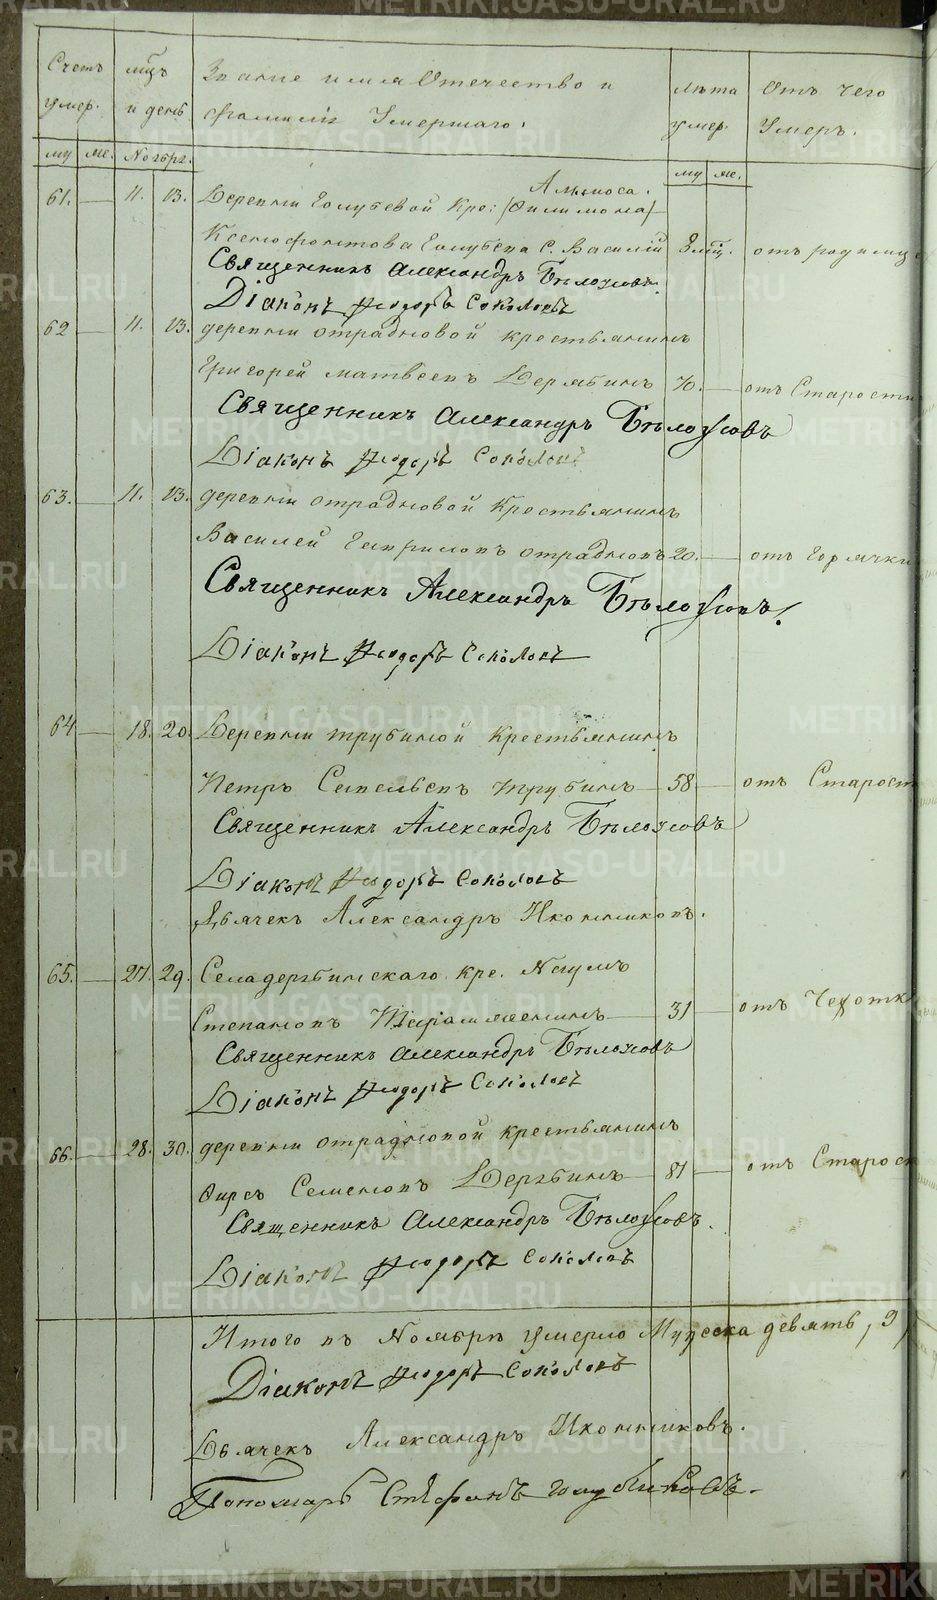 Счетъ умер.
мц̃ъ и день
Званіе имя Отечество и
фамилія Умершаго.
лѣта умер.
Отъ чего Умеръ.
му же. Ноября. му же.
61. 11. 13. Деревни Голубевой Кре: (Филимона) Алмоса.
Ксенофонтова Голубева С. Василій 8 мц. отъ родимц
Священникъ Александръ Бѣлоусовъ.
Діаконъ Ѳеодоръ Соколовъ
62 11. 13. деревни отрадновой крестьянинъ
Григорей Матвеевъ Дерябинъ 70. отъ Старости
Священникъ Александръ Бѣлоусовъ
Діаконъ Ѳеодоръ Соколовъ
63. 11. 13. деревни отрадновой Крестьянинъ
Василей Гавриловъ отрадновъ 20. отъ Горячки
Священникъ Александръ Бѣлоусовъ.
Діаконъ Ѳеодоръ Соколовъ
64 18. 20. Деревни трубиной Крестьянинъ
Петръ Савельевъ трубинъ 58 отъ Старост
Священникъ Александръ Бѣлоусовъ
Діаконъ Ѳеодоръ Соколовъ
Дьячекъ Александръ Иконниковъ.
65. 27. 29. Села дерябинскаго кре. Наумъ
Степановъ 31 отъ Чехотк
Священникъ Александръ Бѣлоусовъ
Діаконъ Ѳеодоръ Соколовъ
66. 28. 30. деревни отрадновой крестьянинъ
Фирсъ Семеновъ Дерябинъ 81 отъ Старос
Священникъ Александръ Бѣлоусовъ.
Діаконъ Ѳеодоръ Соколовъ
Итого въ Ноябрѣ умерло Мужеска девять, 9,
Діаконъ Ѳеодоръ Соколовъ
Дьячекъ Александръ Иконниковъ.
Пономарь Стефанъ Голубчиковъ.
METRIKI.GASO-URAL.RU